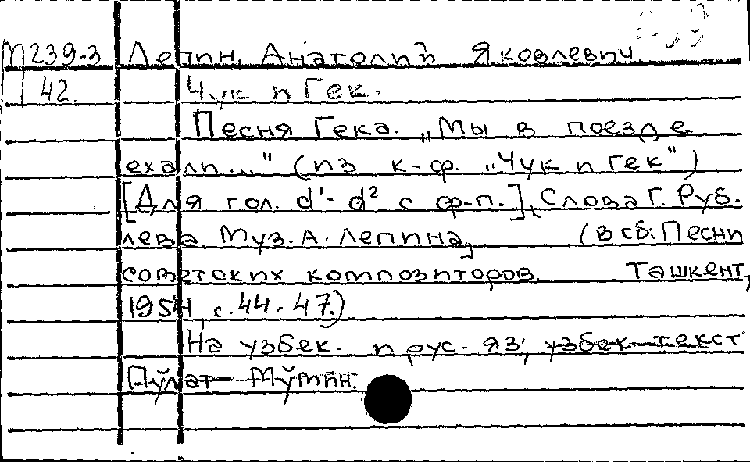 М239-3 Лепин, Анатолий Яковлевич
42. Чук и Гек.
Песня Гека. „Мы в поезде
ехали..." (из к-ф. „Чук и Гек")
[Для гол. d¹-d² с ф-п.], Слова Г. Руб-
лева. Муз. А. Лепина, (в сб: Песни
советских композиторов. Ташкент,
1954, с. 44-47.)
На узбек. и рус. яз, узбек. текст
Пўлат Мўмин.